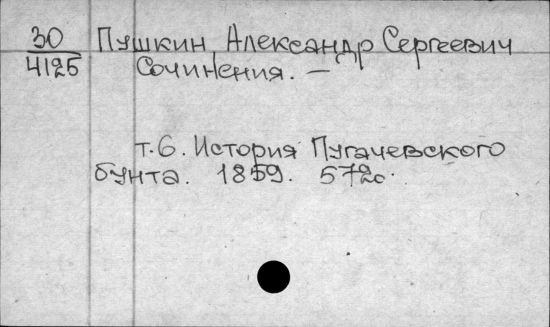 30 Пушкин, Александр Сергеевич
4125 Сочинения. —
т. 6. История Пугачевского
бунта. 1859. 572с.